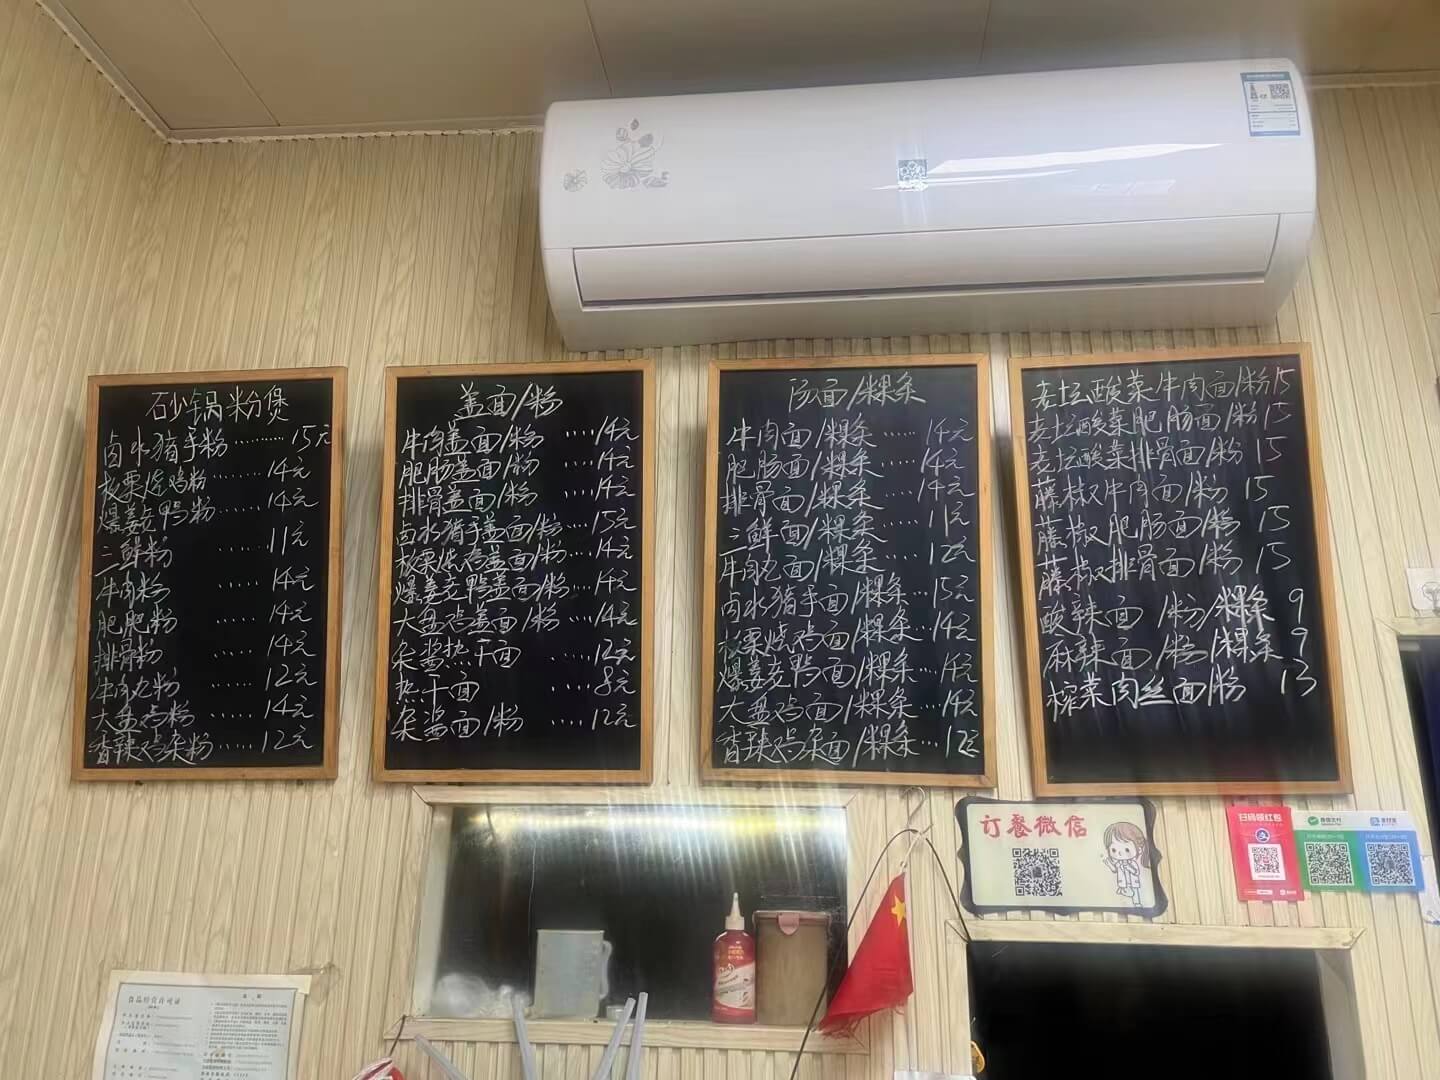 砂锅粉煲
卤水猪手粉………15元
板栗烧鸡粉……14元
爆姜走鸭粉……14元
三鲜粉……11元
牛肉粉……14元
肥肥粉……14元
排骨粉……14元
牛肉丸粉……12元
大盘鸡粉……14元
香辣鸡杂粉……12元
盖面/粉
牛肉盖面/粉……14元
肥肠盖面/粉……14元
排骨盖面/粉……14元
卤水猪手盖面/粉…15元
板栗烧鸡盖面/粉…14元
爆姜走鸭盖面/粉…14元
大盘鸡盖面/粉…14元
杂酱热干面……12元
热干面……8元
杂酱面/粉……12元
汤面/粿条
牛肉面/粿条……14元
肥肠面/粿条……14元
排骨面/粿条……14元
三鲜面/粿条……11元
牛肉丸面/粿条……12元
卤水猪手面/粿条…15元
板栗烧鸡面/粿条…14元
爆姜走鸭面/粿条…14元
大盘鸡面/粿条…14元
香辣鸡杂面/粿条…12元
老坛酸菜牛肉面/粉15
老坛酸菜肥肠面/粉15
老坛酸菜排骨面/粉15
藤椒牛肉面/粉15
藤椒肥肠面/粉15
藤椒排骨面/粉15
酸辣面/粉/粿条9
麻辣面/粉/粿条9
榨菜肉丝面/粉13
订餐微信
扫码领红包
微信支付
支付宝
食品经营许可证